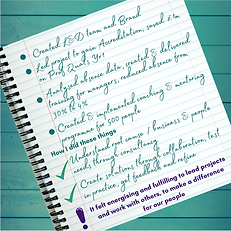 Created L&D team and Brand
Led project to gain Accreditation, saved £1m
on Prof Quals, Yr1
Analysed absence data, created & delivered
training for managers, reduced absence from
30% to 4%
Created & implemented coaching & mentoring
programme for 500 people
How I did these things
Understand root cause / business & people
needs through consultancy
Create solutions through collaboration, test
in practice, get feedback and refine
It felt energising and fulfilling to lead projects
and work with others, to make a difference
for our people